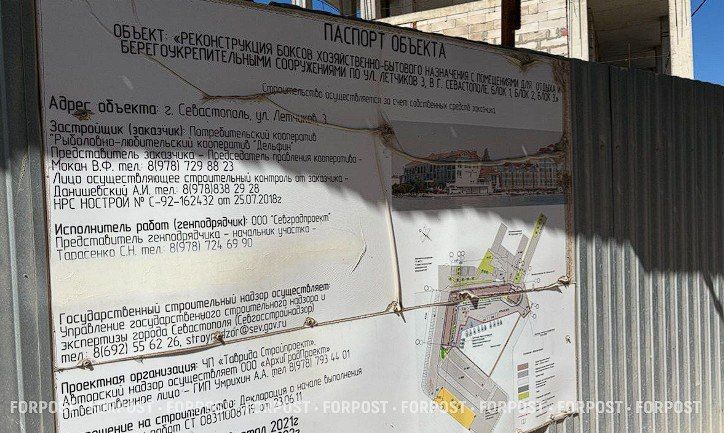 ПАСПОРТ ОБЪЕКТА
ОБЪЕКТ: «РЕКОНСТРУКЦИЯ БОКСОВ ХОЗЯЙСТВЕННО-БЫТОВОГО НАЗНАЧЕНИЯ С ПОМЕЩЕНИЯМИ ДЛЯ ОТДЫХА И
БЕРЕГОУКРЕПИТЕЛЬНЫМИ СООРУЖЕНИЯМИ ПО УЛ. ЛЕТЧИКОВ 3, В Г. СЕВАСТОПОЛЕ. БЛОК 1, БЛОК 2, БЛОК 3»
Строительство осуществляется за счет собственных средств заказчика.
Адрес объекта: г. Севастополь, ул. Летчиков, 3
Застройщик (заказчик): Потребительский кооператив
"Рыболовно-любительский кооператив "Дельфин"
Представитель заказчика - Председатель правления кооператива -
Мокан В.Ф. тел.: 8(978) 729 88 23
Лицо осуществляющее строительный контроль от заказчика -
Данишевский А.И. тел.: 8(978)838 29 28
НРС НОСТРОЙ № С-92-162432 от 25.07.2018г
Исполнитель работ (генподрядчик): ООО "Севградпроект"
Представитель генподрядчика - начальник участка -
Тарасенко С.Н. тел.: 8(978) 724 69 90
Государственный строительный надзор осуществляет:
Управление государственного строительного надзора и
экспертизы города Севастополя (Севгосстройнадзор)
тел: 8(692) 55 62 26, stroynadzor@sev.gov.ru
Проектная организация: ЧП «Таврида Стройпроект».
Авторский надзор осуществляет ООО «АрхиГрадПроект»
Ответственное лицо - ГИП Умрихин А.А. тел 8(978) 793 44 01
на строительство: Декларация о начале выполнения
работ СТ
2021г
FORPOST · FORPOST · FORPOST · FORPOST · FORPOST · FORPOST · FORPOST · FORPOST · FORPOST